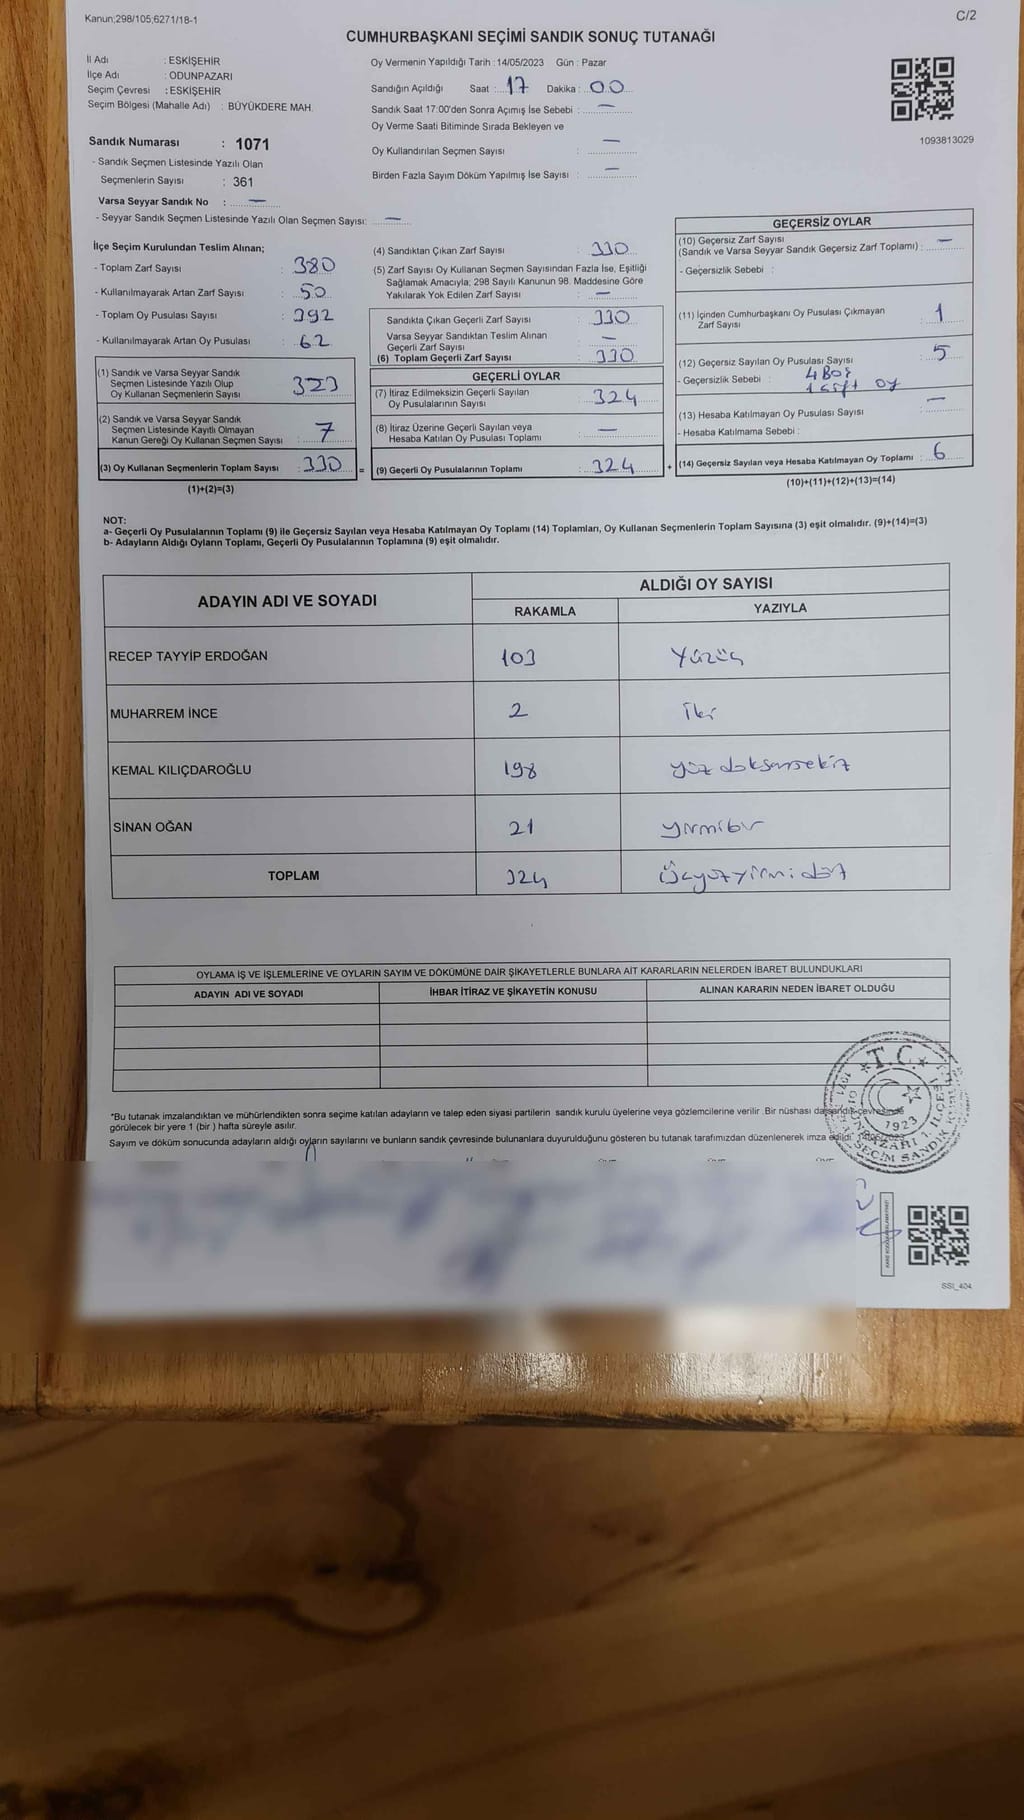 Kanun;298/105;6271/18-1
C/2
CUMHURBAŞKANI SEÇİMİ SANDIK SONUÇ TUTANAĞI
İl Adı : ESKİŞEHİR
İlçe Adı : ODUNPAZARI
Seçim Çevresi : ESKİŞEHİR
Seçim Bölgesi (Mahalle Adı) : BÜYÜKDERE MAH.
Sandık Numarası : 1071
- Sandık Seçmen Listesinde Yazılı Olan
Seçmenlerin Sayısı : 361
Varsa Seyyar Sandık No : —
- Seyyar Sandık Seçmen Listesinde Yazılı Olan Seçmen Sayısı: —
Oy Vermenin Yapıldığı Tarih : 14/05/2023 Gün : Pazar
Sandığın Açıldığı Saat : 17 Dakika : 00
Sandık Saat 17:00'den Sonra Açımış İse Sebebi : —
Oy Verme Saati Bitiminde Sırada Bekleyen ve
Oy Kullandırılan Seçmen Sayısı : —
Birden Fazla Sayım Döküm Yapılmış İse Sayısı : —
1093813029
İlçe Seçim Kurulundan Teslim Alınan;
- Toplam Zarf Sayısı : 380
- Kullanılmayarak Artan Zarf Sayısı : 50
- Toplam Oy Pusulası Sayısı : 392
- Kullanılmayarak Artan Oy Pusulası : 62
(1) Sandık ve Varsa Seyyar Sandık
Seçmen Listesinde Yazılı Olup
Oy Kullanan Seçmenlerin Sayısı : 323
(2) Sandık ve Varsa Seyyar Sandık
Seçmen Listesinde Kayıtlı Olmayan
Kanun Gereği Oy Kullanan Seçmen Sayısı : 7
(3) Oy Kullanan Seçmenlerin Toplam Sayısı : 330 =
(1)+(2)=(3)
(4) Sandıktan Çıkan Zarf Sayısı : 330
(5) Zarf Sayısı Oy Kullanan Seçmen Sayısından Fazla İse, Eşitliği
Sağlamak Amacıyla; 298 Sayılı Kanunun 98. Maddesine Göre
Yakılarak Yok Edilen Zarf Sayısı : —
Sandıkta Çıkan Geçerli Zarf Sayısı : 330
Varsa Seyyar Sandıktan Teslim Alınan
Geçerli Zarf Sayısı : —
(6) Toplam Geçerli Zarf Sayısı : 330
GEÇERLİ OYLAR
(7) İtiraz Edilmeksizin Geçerli Sayılan
Oy Pusulalarının Sayısı : 324
(8) İtiraz Üzerine Geçerli Sayılan veya
Hesaba Katılan Oy Pusulası Toplamı : —
(9) Geçerli Oy Pusulalarının Toplamı : 324 +
GEÇERSİZ OYLAR
(10) Geçersiz Zarf Sayısı
(Sandık ve Varsa Seyyar Sandık Geçersiz Zarf Toplamı) : —
- Geçersizlik Sebebi :
(11) İçinden Cumhurbaşkanı Oy Pusulası Çıkmayan
Zarf Sayısı : 1
(12) Geçersiz Sayılan Oy Pusulası Sayısı : 5
- Geçersizlik Sebebi : 4 Boş
1 çift oy
(13) Hesaba Katılmayan Oy Pusulası Sayısı : —
- Hesaba Katılmama Sebebi :
(14) Geçersiz Sayılan veya Hesaba Katılmayan Oy Toplamı : 6
(10)+(11)+(12)+(13)=(14)
NOT:
a- Geçerli Oy Pusulalarının Toplamı (9) ile Geçersiz Sayılan veya Hesaba Katılmayan Oy Toplamı (14) Toplamları, Oy Kullanan Seçmenlerin Toplam Sayısına (3) eşit olmalıdır. (9)+(14)=(3)
b- Adayların Aldığı Oyların Toplamı, Geçerli Oy Pusulalarının Toplamına (9) eşit olmalıdır.
ADAYIN ADI VE SOYADI
ALDIĞI OY SAYISI
RAKAMLA YAZIYLA
RECEP TAYYİP ERDOĞAN 103 Yüzüç
MUHARREM İNCE 2 İki
KEMAL KILIÇDAROĞLU 198 yüz doksansekiz
SİNAN OĞAN 21 yirmibir
TOPLAM 324 Üçyüzyirmi dört
OYLAMA İŞ VE İŞLEMLERİNE VE OYLARIN SAYIM VE DÖKÜMÜNE DAİR ŞİKAYETLERLE BUNLARA AİT KARARLARIN NELERDEN İBARET BULUNDUKLARI
ADAYIN ADI VE SOYADI İHBAR İTİRAZ VE ŞİKAYETİN KONUSU ALINAN KARARIN NEDEN İBARET OLDUĞU
*Bu tutanak imzalandıktan ve mühürlendikten sonra seçime katılan adayların ve talep eden siyasi partilerin sandık kurulu üyelerine veya gözlemcilerine verilir .Bir nüshası da sandık çevresinde
görülecek bir yere 1 (bir ) hafta süreyle asılır.
Sayım ve döküm sonucunda adayların aldığı oyların sayılarını ve bunların sandık çevresinde bulunanlara duyurulduğunu gösteren bu tutanak tarafımızdan düzenlenerek imza edildi.
T.C.
1923
SSI_404